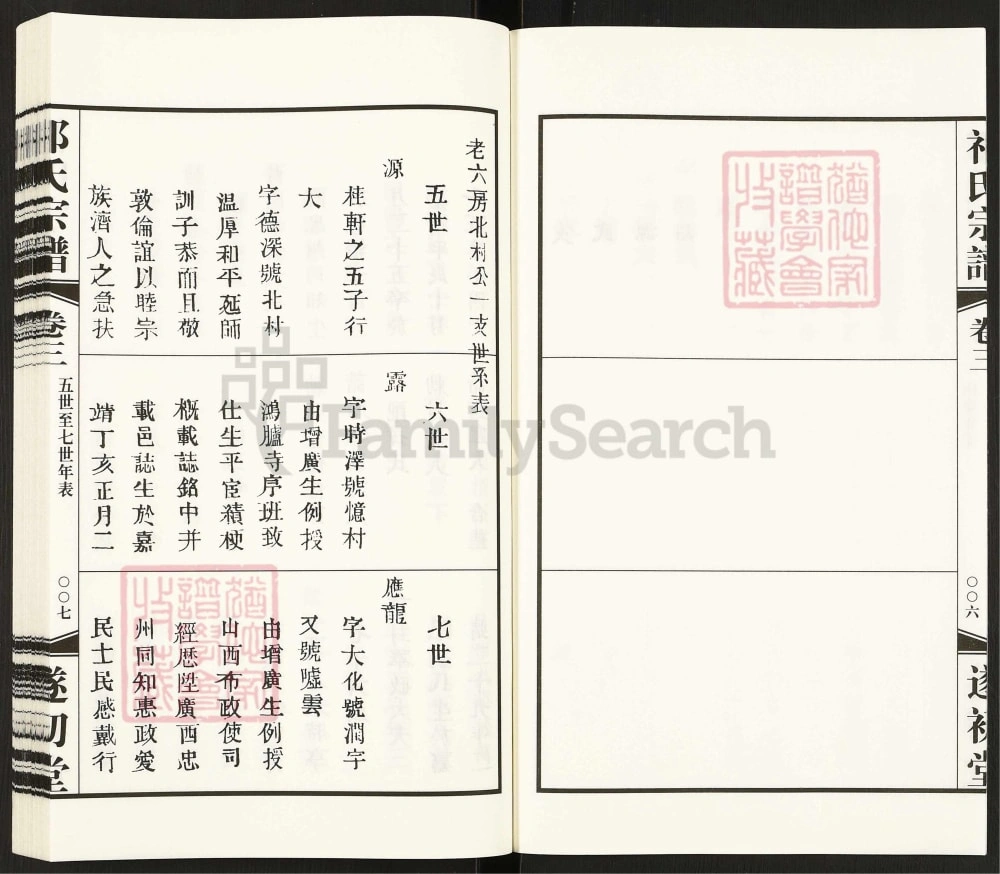 祁氏宗譜
卷三
〇〇六
遂初堂
猶他家
譜學會
收藏
老六房北村公一支世系表
五世
源
桂軒之五子行
大
字德深號北村
温厚和平延師
訓子恭而且敬
敦倫誼以睦宗
族濟人之急扶
六世
露
字時澤號憶村
由增廣生例授
鴻臚寺序班致
仕生平宦績梗
概載誌銘中并
載邑誌生於嘉
靖丁亥正月二
七世
應龍
字大化號潤宇
又號噓雲
由增廣生例授
山西布政使司
經歷陞廣西忠
州同知惠政愛
民士民感戴行
猶他家
譜學會
收藏
祁氏宗譜
卷三
五世至七世年表
〇〇七
遂初堂
FamilySearch